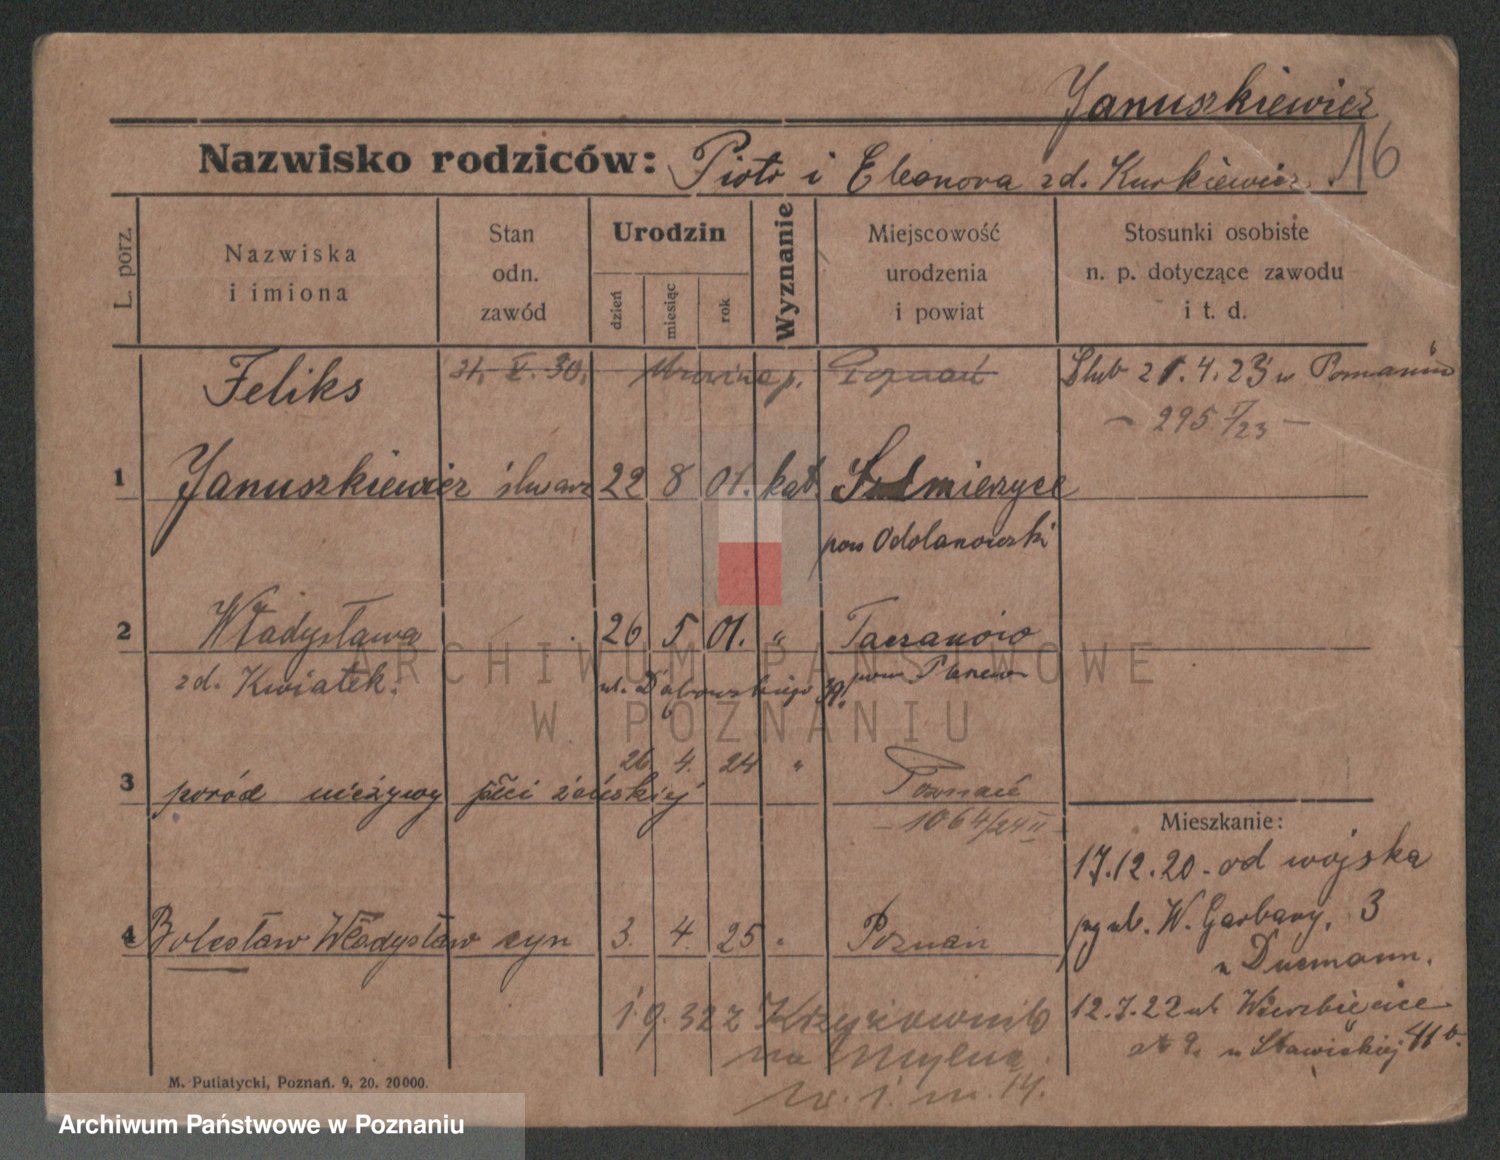 Januszkiewicz
16
Nazwisko rodziców: Piotr i Eleonora zd. Kurkiewicz.
L. porz.
Nazwiska
i imiona
Stan
odn.
zawód
Urodzin
dzień
miesiąc
rok
Wyznanie
Miejscowość
urodzenia
i powiat
Stosunki osobiste
n. p. dotyczące zawodu
i t. d.
Feliks 31. X. 30. Mrowino p. Poznań Ślub 21.4.23 w Poznaniu
– 295 I/23 –
1 Januszkiewicz ślusarz 22 8 01. kat. Sulmierzyce
pow Odolanowski
2 Władysława 26 5 01. " Taczanowo
zd. Kwiatek. ul. Dąbrowskiego 39. pow Plesew
26 4. 24 "
3 poród nieżywy płci żeńskiej Poznań
– 1064/24 II –
Mieszkanie:
17.12.20. od wojska
ul. W. Garbary, 3
4 Bolesław Władysław syn 3. 4. 25 " Poznań
u Ducmann.
1.9.32 z Krzyżownik 12.7.22 ul. Wierzbięcice
na Mylna u Stawickiej 41b.
m. 14.
M. Putiatycki, Poznań. 9. 20. 20000.
ARCHIWUM PAŃSTWOWE
W POZNANIU
Archiwum Państwowe w Poznaniu